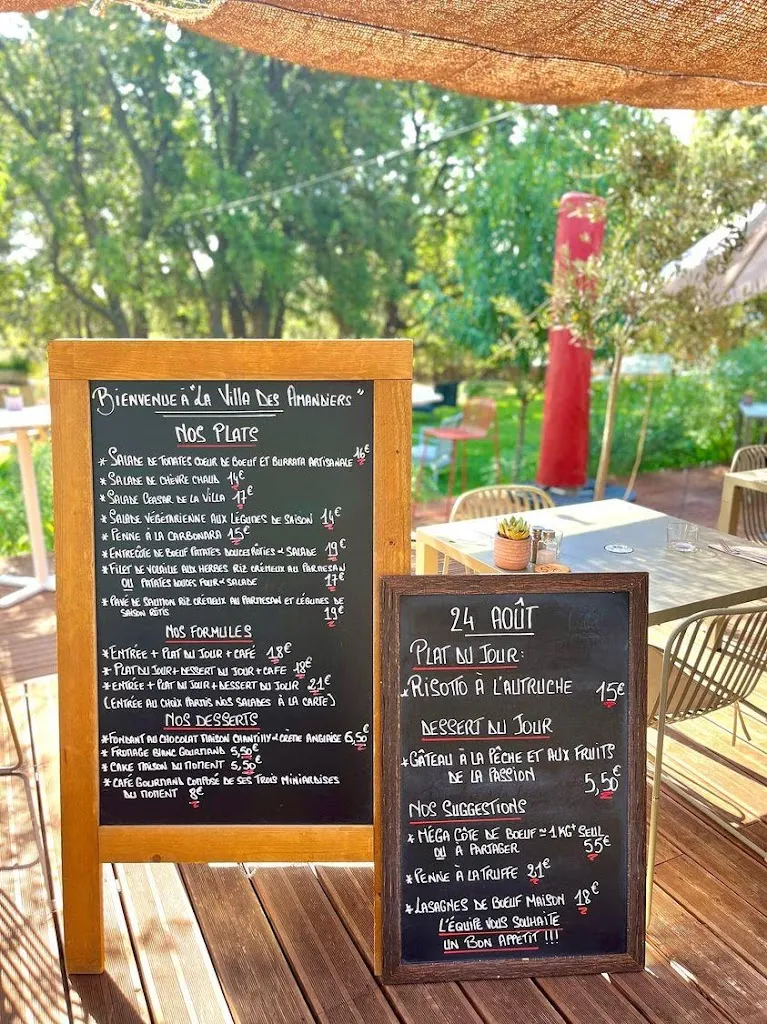 BIENVENUE À "LA VILLA DES AMANDIERS"
NOS PLATS
* SALADE DE TOMATES COEUR DE BOEUF ET BURRATA ARTISANALE 16€
* SALADE DE CHÈVRE CHAUD 14€
* SALADE CEASAR DE LA VILLA 17€
* SALADE VÉGÉTARIENNE AUX LÉGUMES DE SAISON 14€
* PENNE À LA CARBONARA 15€
* ENTRECÔTE DE BOEUF PATATES DOUCES RÔTIES et SALADE 19€
* FILET DE VOLAILLE AUX HERBES RIZ CRÉMEUX AU PARMESAN
OU PATATES DOUCES POUR et SALADE 17€
* PAVÉ DE SAUMON RIZ CRÉMEUX AU PARMESAN ET LÉGUMES DE
SAISON RÔTIS 19€
NOS FORMULES
* ENTRÉE + PLAT DU JOUR + CAFÉ 18€
* PLAT DU JOUR + DESSERT DU JOUR + CAFÉ 18€
* ENTRÉE + PLAT DU JOUR + DESSERT DU JOUR 21€
(ENTRÉE AU CHOIX PARMIS NOS SALADES À LA CARTE)
NOS DESSERTS
* FONDANT AU CHOCOLAT MAISON CHANTILLY et CRÈME ANGLAISE 6,50€
* FROMAGE BLANC GOURMAND 5,50€
* CAKE MAISON DU MOMENT 5,50€
* CAFÉ GOURMAND COMPOSÉ DE SES TROIS MINIARDISES
DU MOMENT 8€
24 AOÛT
PLAT DU JOUR:
* RISOTTO À L'AUTRUCHE 15€
DESSERT DU JOUR
* GÂTEAU À LA PÊCHE ET AUX FRUITS
DE LA PASSION 5,50€
NOS SUGGESTIONS
* MÉGA CÔTE DE BOEUF ≈ 1 KG+ SEUL
OU À PARTAGER 55€
* PENNE À LA TRUFFE 21€
* LASAGNES DE BOEUF MAISON 18€
L'ÉQUIPE VOUS SOUHAITE
UN BON APPETIT !!!